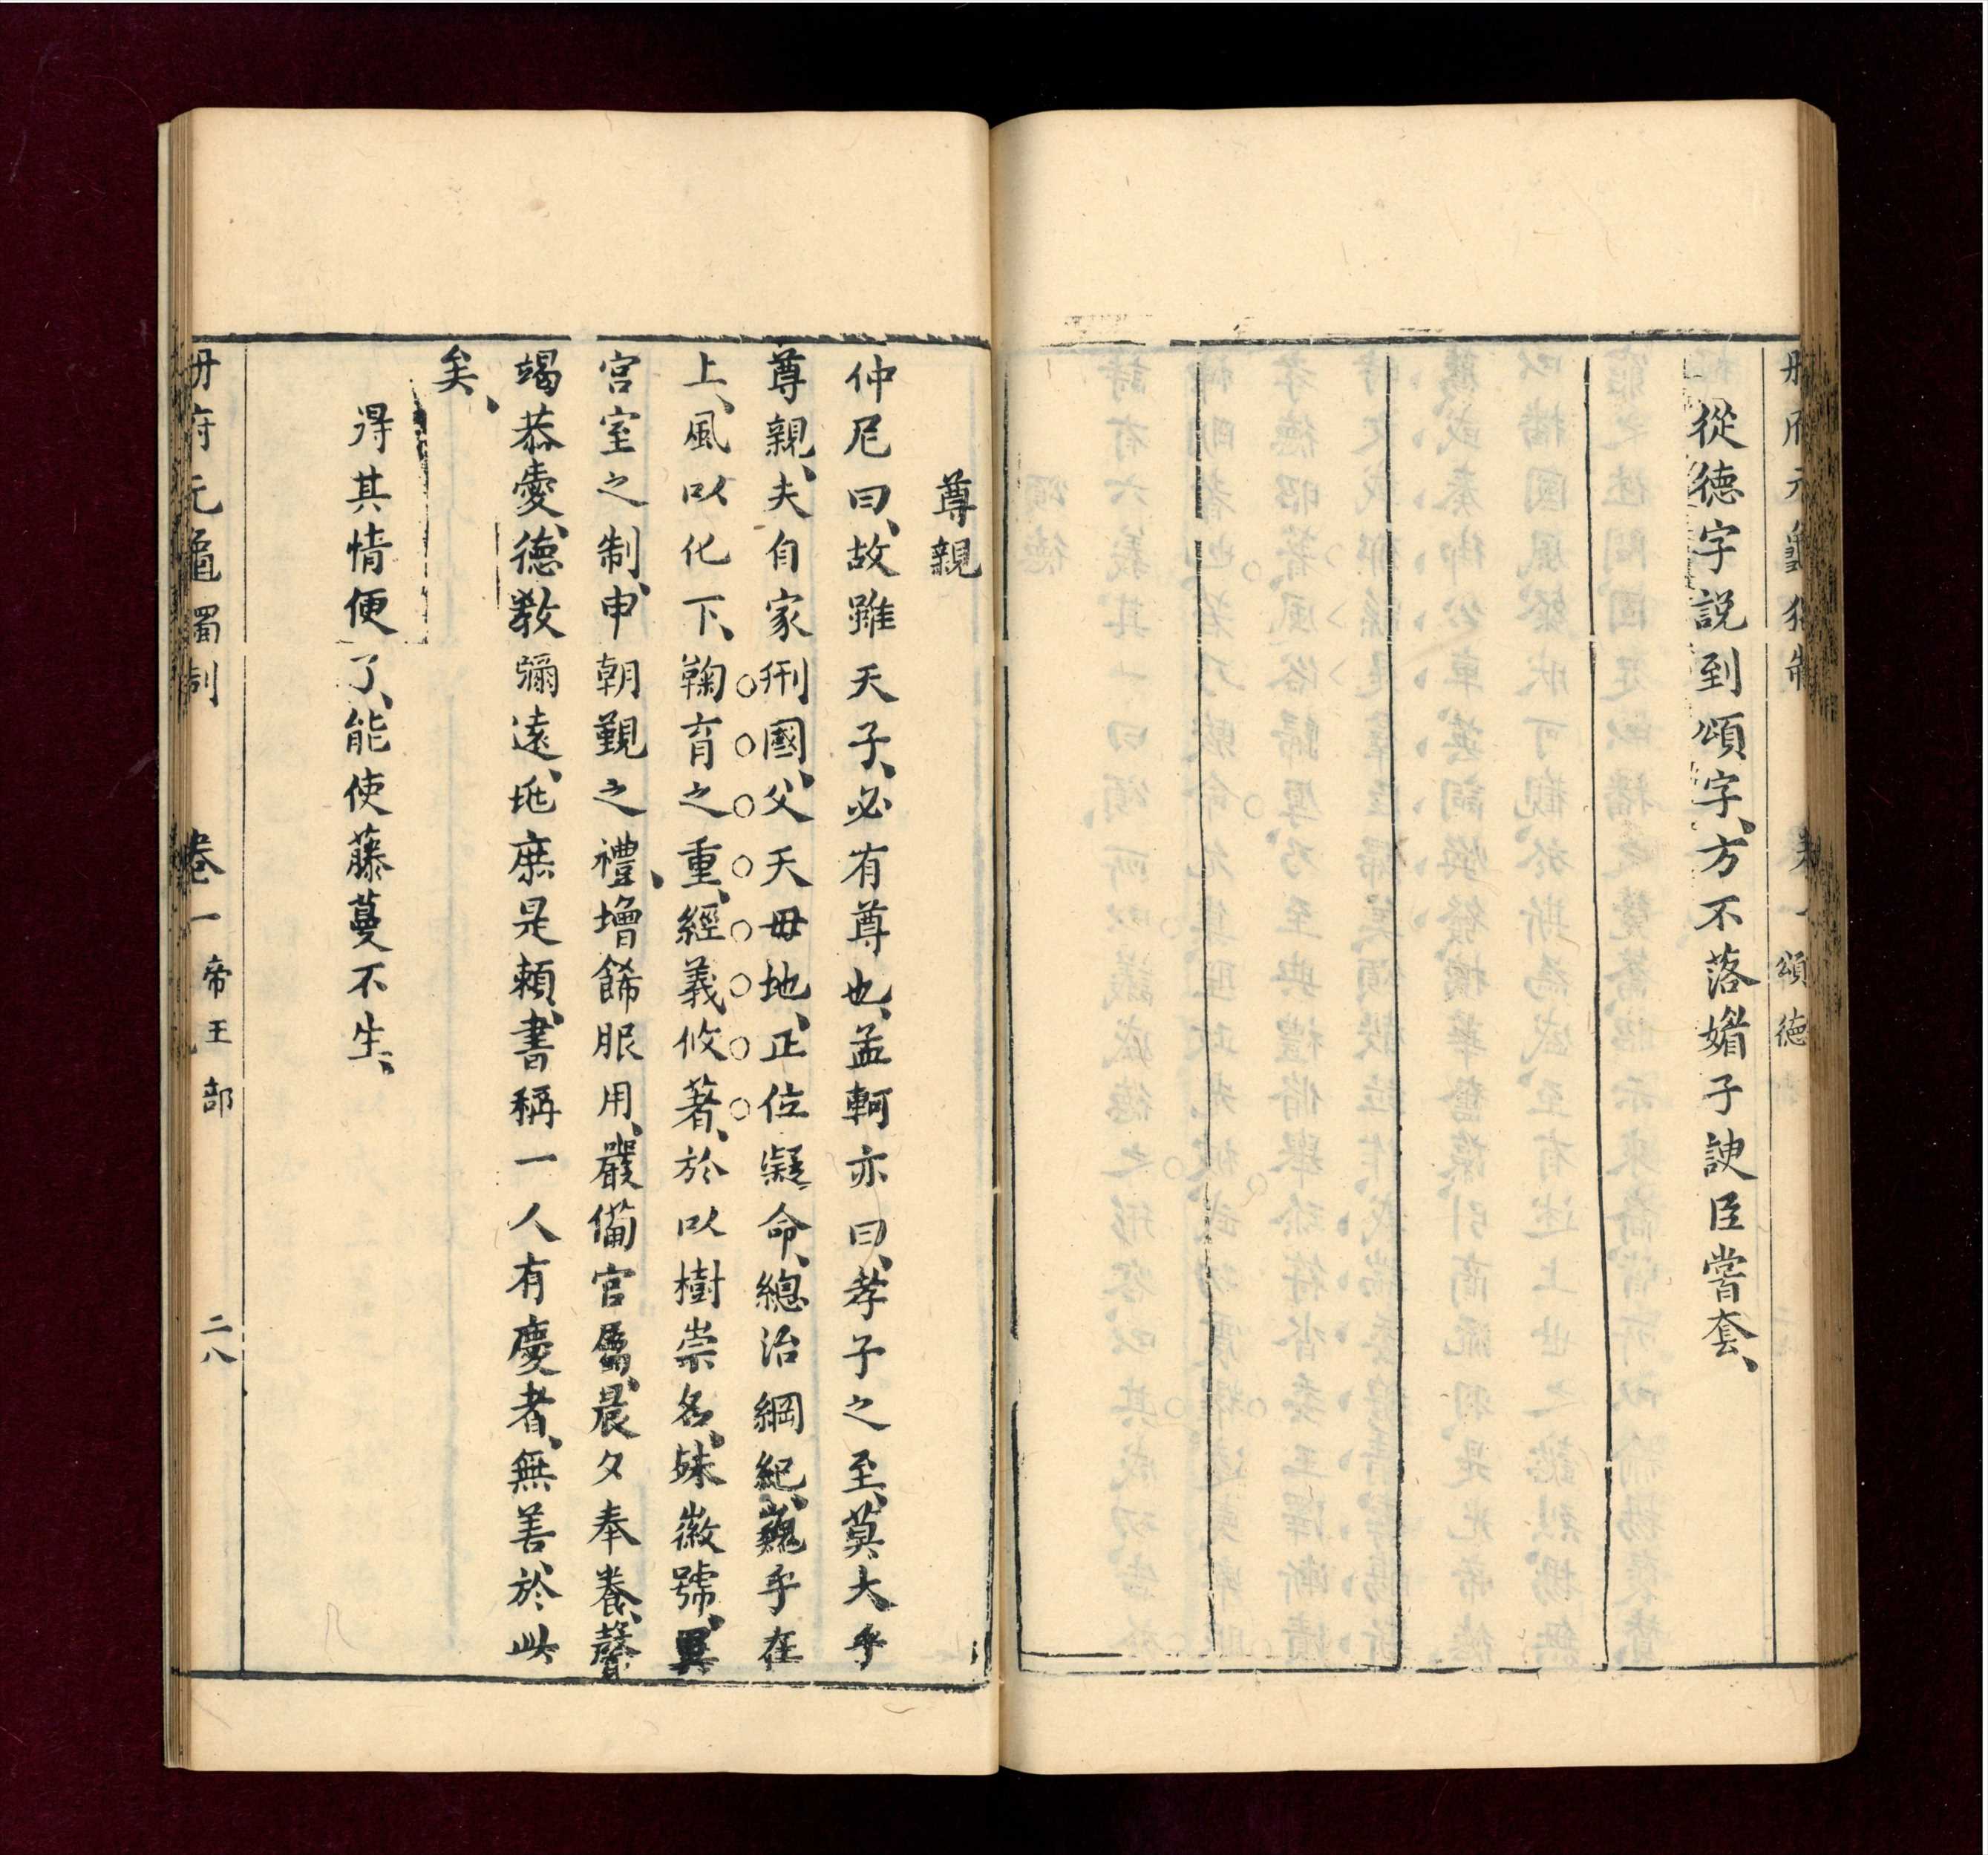 從德字説到頌字、方不落媚子諛臣嘗套、
頌德
尊親
仲尼曰、故雖天子、必有尊也、孟軻亦曰、孝子之至、莫大乎
尊親、夫自家刑國、父天毋地、正位凝命、總治綱紀、巍乎在
上、風以化下、鞠育之重、經義攸著、於以樹崇名、殊徽號、異
宮室之制、申朝覲之禮、增餙服用、嚴備官屬、晨夕奉養、馨
竭恭愛、德敎彌遠、毗庶是頼、書稱一人有慶者、無善於此
矣、
得其情便了、能使藤蔓不生、
册府元龜獨制 卷一帝王部 二八